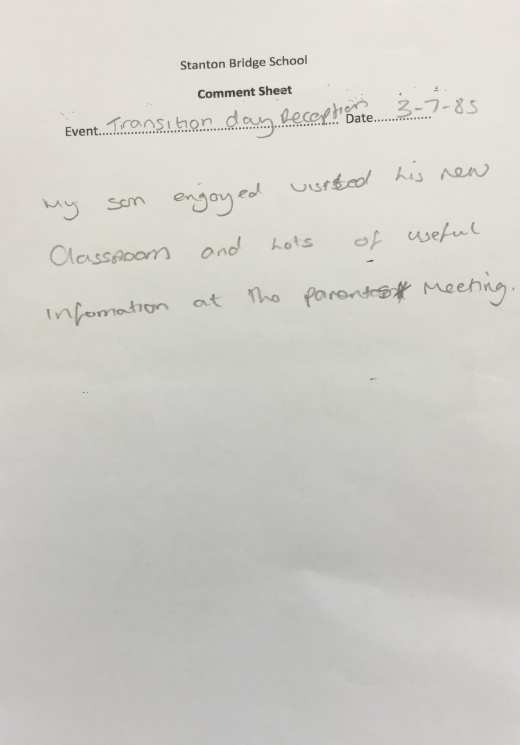 Stanton Bridge School
Comment Sheet
Event Transition day Reception Date 3-7-85
My son enjoyed visited his new
Classroom and Lots of useful
Infomation at the parents Meeting.